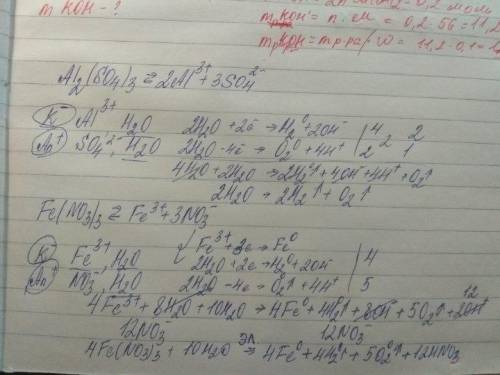 m KOH - ?
m KOH = n · M = 0,2 · 56 = 11,2
= 0,2 моль
Al₂(SO₄)₃ ⇄ 2Al³⁺ + 3SO₄²⁻
K⁻ Al³⁺ H₂O 2H₂O + 2ē → H₂⁰ + 2OH⁻ | 4 2 2
An⁺ SO₄²⁻, H₂O 2H₂O - 4ē → O₂⁰ + 4H⁺ | 2 1
4H₂O + 2H₂O → 2H₂⁰↑ + 4OH⁻ + 4H⁺ + O₂↑
2H₂O → 2H₂↑ + O₂↑
Fe(NO₃)₃ ⇄ Fe³⁺ + 3NO₃⁻
K⁻ Fe³⁺, H₂O { Fe³⁺ + 3ē → Fe⁰ | 4
2H₂O + 2ē → H₂⁰ + 2OH⁻
An⁺ NO₃⁻, H₂O 2H₂O - 4ē → O₂⁰↑ + 4H⁺ | 5
4Fe³⁺ + 8H₂O + 10H₂O → 4Fe⁰ + 4H₂⁰↑ + 8OH⁻ + 5O₂⁰↑ + 20H⁺ 12
12NO₃⁻ 12NO₃⁻
4Fe(NO₃)₃ + 10H₂O эл→ 4Fe⁰ + 4H₂⁰↑ + 5O₂⁰↑ + 12HNO₃